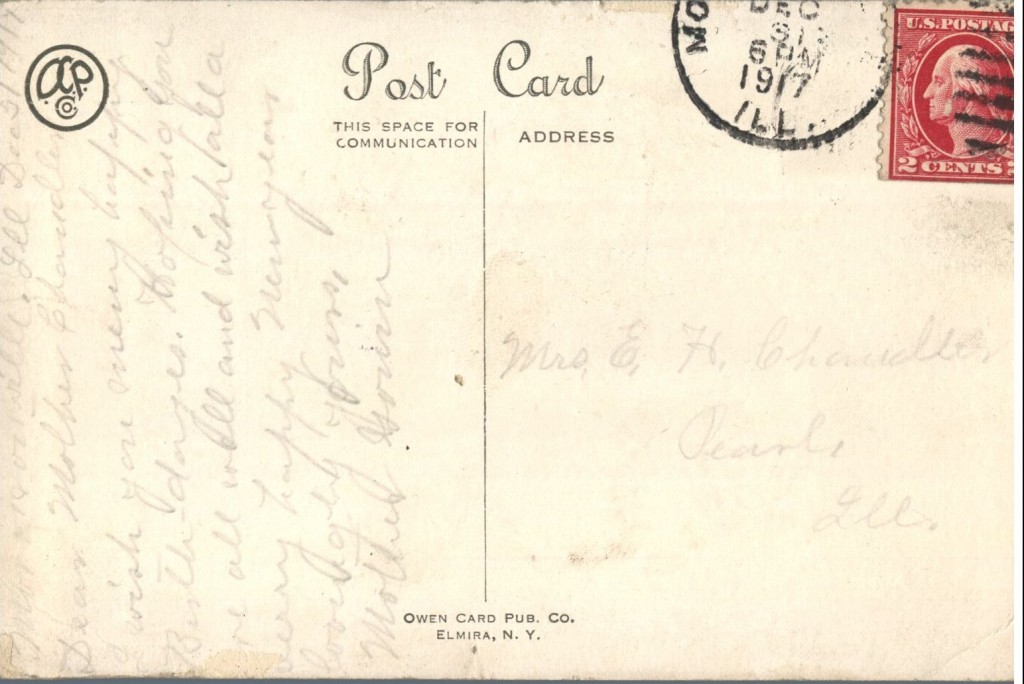 Post Card
THIS SPACE FOR
COMMUNICATION
ADDRESS
MO
DEC
31
6 PM
1917
ILL.
U.S. POSTAG
2 CENTS 2
Ill Dec 31 1917
Dear Mother Chandler
I wish you meny happy
Birth-dayes. Hoping you
re all well and wish
very happy Newyear
Yours
Mother
Mrs. E. H. Chandler
Pearl
Ill.
OWEN CARD PUB. CO.
ELMIRA, N. Y.